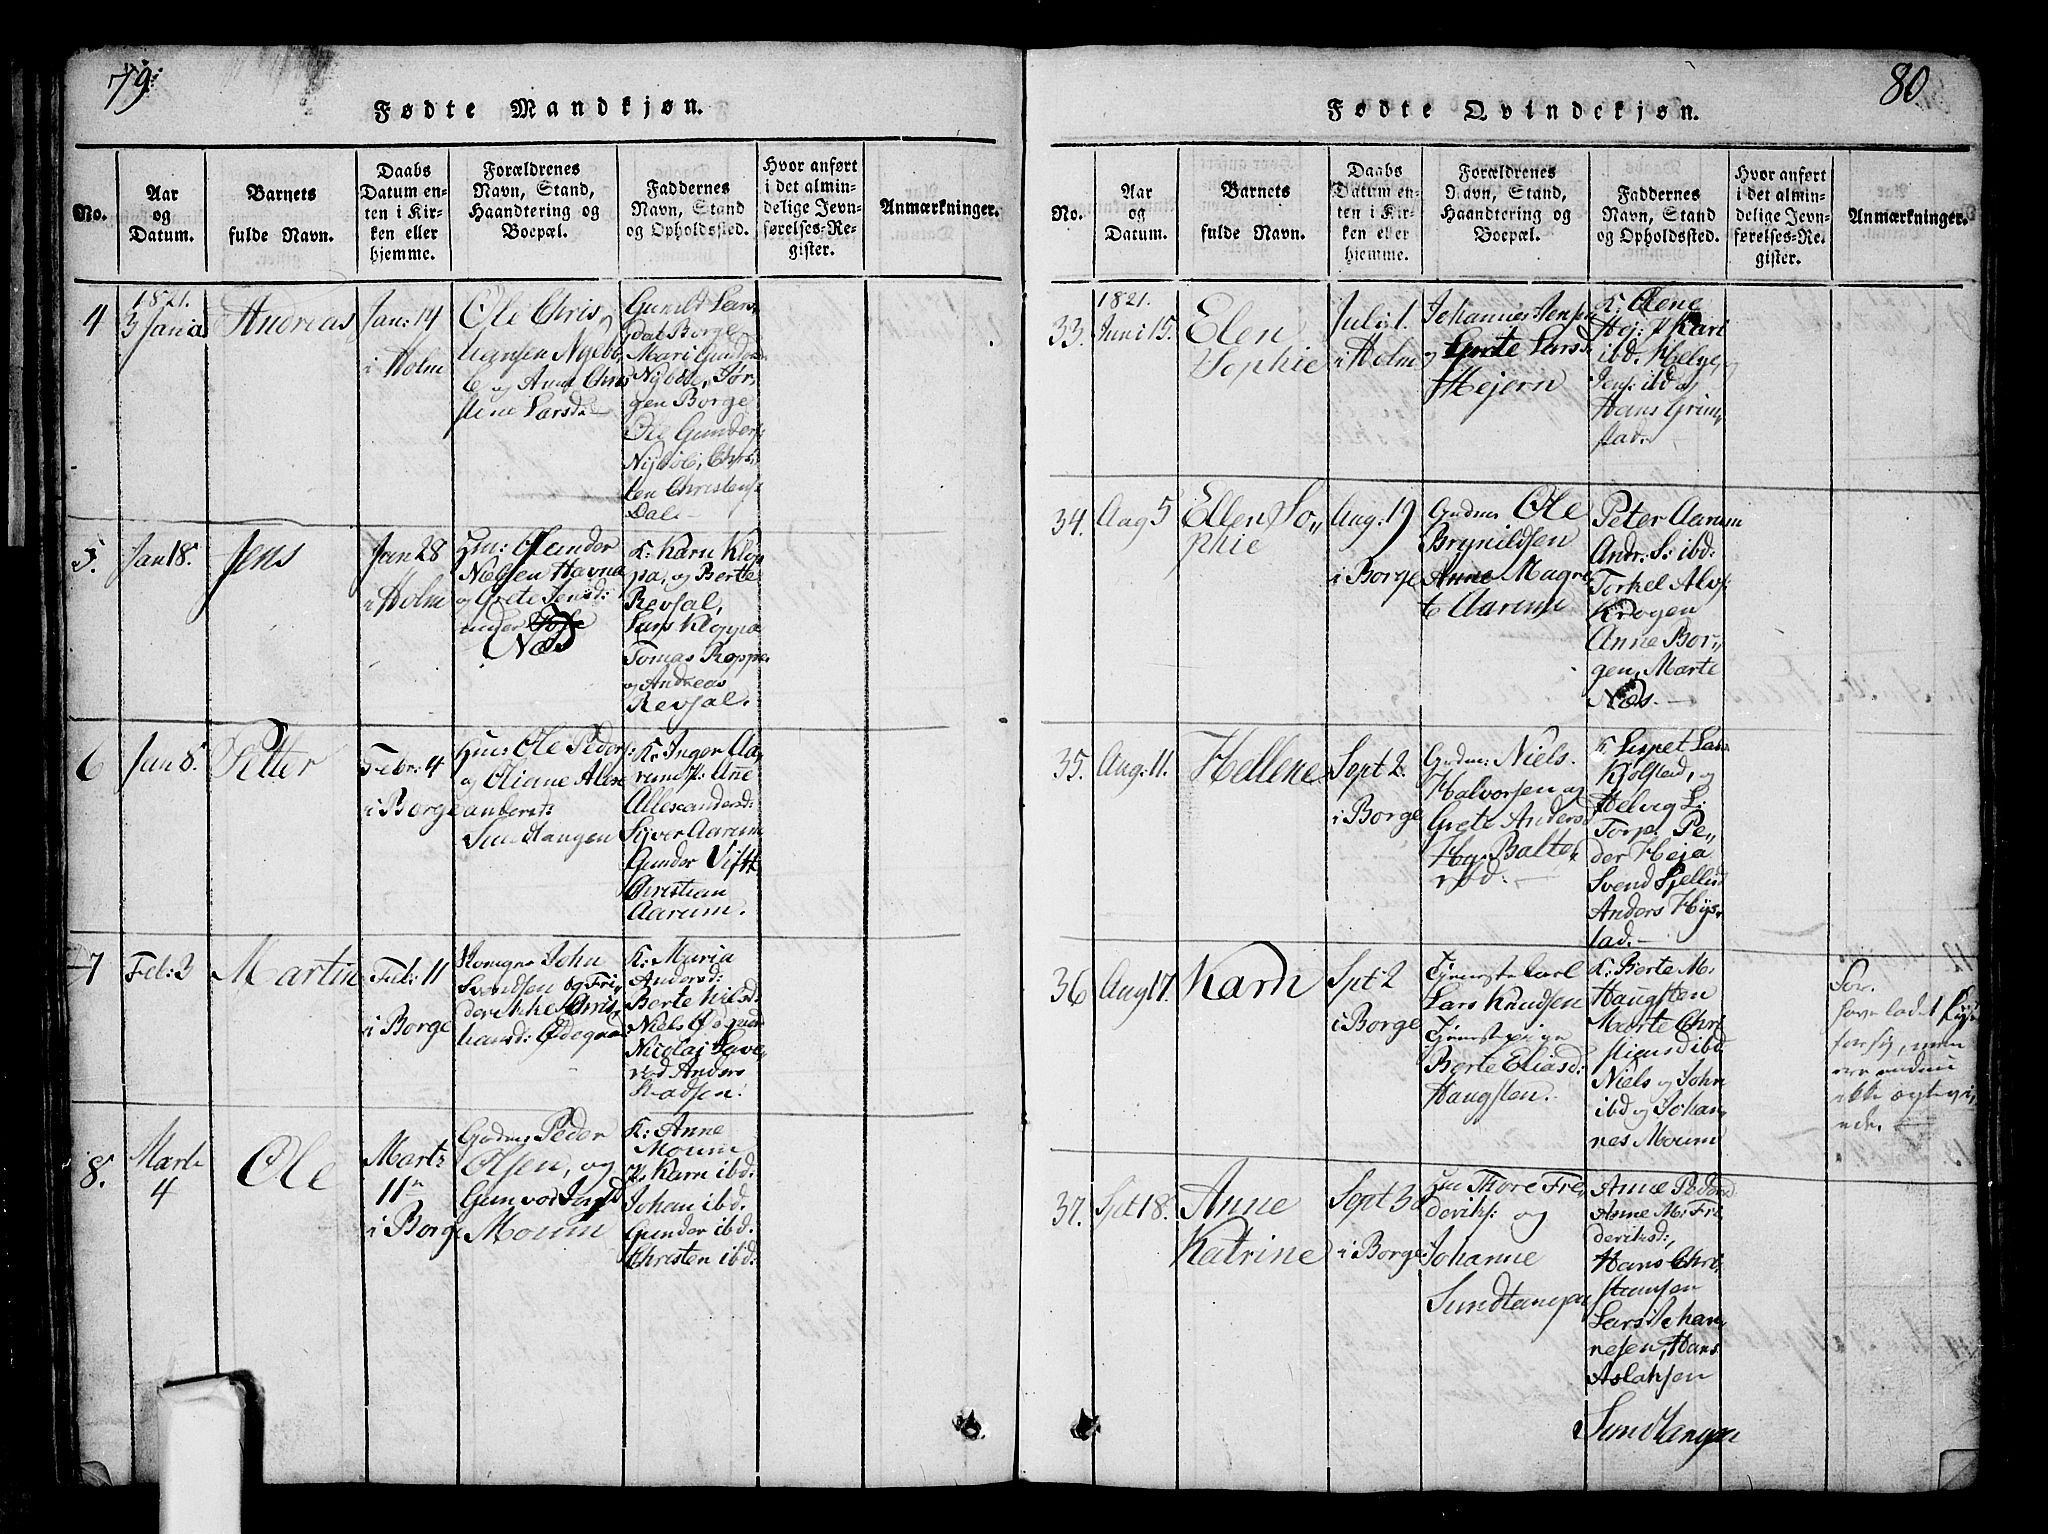 79.
Fødte Mandkjøn.
No.
Aar
og
Datum.
Barnets
fulde Navn.
Daabs
Datum en-
ten i Kir-
ken eller
hjemme.
Forældrenes
Navn, Stand,
Haandtering og
Boepæl.
Faddernes
Navn, Stand
og Opholdssted.
Hvor anført
i det almin-
delige Jevn-
førelses-Re-
gister.
Anmærkninger.
4
1821.
3 Janua
Andreas
Jan: 14
i Holm
Ole Chris,
og Anne Chris
stine Larsd:
dal Borge
Mari
gen Borge
Ole Gunders
ten Christens
Dal.
5.
Jan 18.
Jens
Jan 28
i Holm
Nielsen Havna
og Grete Jensd:
under
Næs
K: Karn Klop
pa, og Berte
Revsal,
Lars Kloppa
Tomas Roppe
og Andreas
Revsal.
6
Jan 8.
Petter
Febr: 4
i Borge
Ole Peders:
og Oliane Alex
Sundtangen
K: Inger Aa,
rum p: Anne
Allexandersd:
Syver Aarum
Gunder
Christian
Aarum.
7
Feb: 3
Martin
Feb: 11
i Borge
John
Svendsen og Fri,
K: Maria
Andersd:
Berte Nielsd:
Niels
Nicolaj
Anders
8.
Marts
4
Ole
Marts
11
i Borge
Gudm: Peder
Olsen, og
Moum
K: Anne
Moum
p: Karn ibd:
Johan ibd.
Gunder ibd.
Christen ibd:
80
Fødte Qvindekjøn.
No.
Aar
og
Datum.
Barnets
fulde Navn.
Daabs
Datum en-
ten i Kir-
ken eller
hjemme.
Forældrenes
Navn, Stand,
Haandtering og
Boepæl.
Faddernes
Navn, Stand
og Opholdssted.
Hvor anført
i det almin-
delige Jevn-
førelses-Re-
gister.
Anmærkninger.
33.
1821.
Juni 15.
Elen
Sophie
Juli: 1.
i Holm
Johannes Jensen
og Grete Larsd:
Hejern
K: Olene
Hej: p Kari
ibd. Helge
Jens: ibd og
Hans Grim,
stad.
34.
Aug 5
Ellen So,,
phie
Aug: 19
i Borge
Gudm: Ole
Brynildsen
Anne Magre
te Aarum
Peter Aarum
Andr: S: ibd:
Torkel Alvs
Krogen
Anne Bor,,
gen, Marte
Næs.
35.
Aug: 11.
Hellene
Sept 2.
i Borge
Gudm: Niels
Halvorsen og
Grete Andersd
Hg. Balte,
rød.
K: Lispet Lars
Kjølstad, og
Helvig L:
Torp. Pe,,
der Heja
Svend
Anders Hys,
tad.
36
Aug 17.
Karn
Spt: 2
i Borge
Tjenestekarl
Lars Knudsen
Tjenestepige
Berte Eliasd:
Haugsten.
K: Berte M:
Haugsten
Marte Chri
stiensd ibd.
Niels og John
ibd og Johan,
nes Moum
For.
have ladet
for sig, men
ere endnu
ikke ægtevi,
ede.
37.
Spt 18.
Anne
Katrine
Sept 30
i Borge
Thore Fre,
deriks: og
Johanne
Sundtangen
Anne Pedersd
Anne M: Fre
deriksd:,
Hans Chri,
stiansen
Lars Johan,
nesen, Hans
Aslaksen
Sundtangen